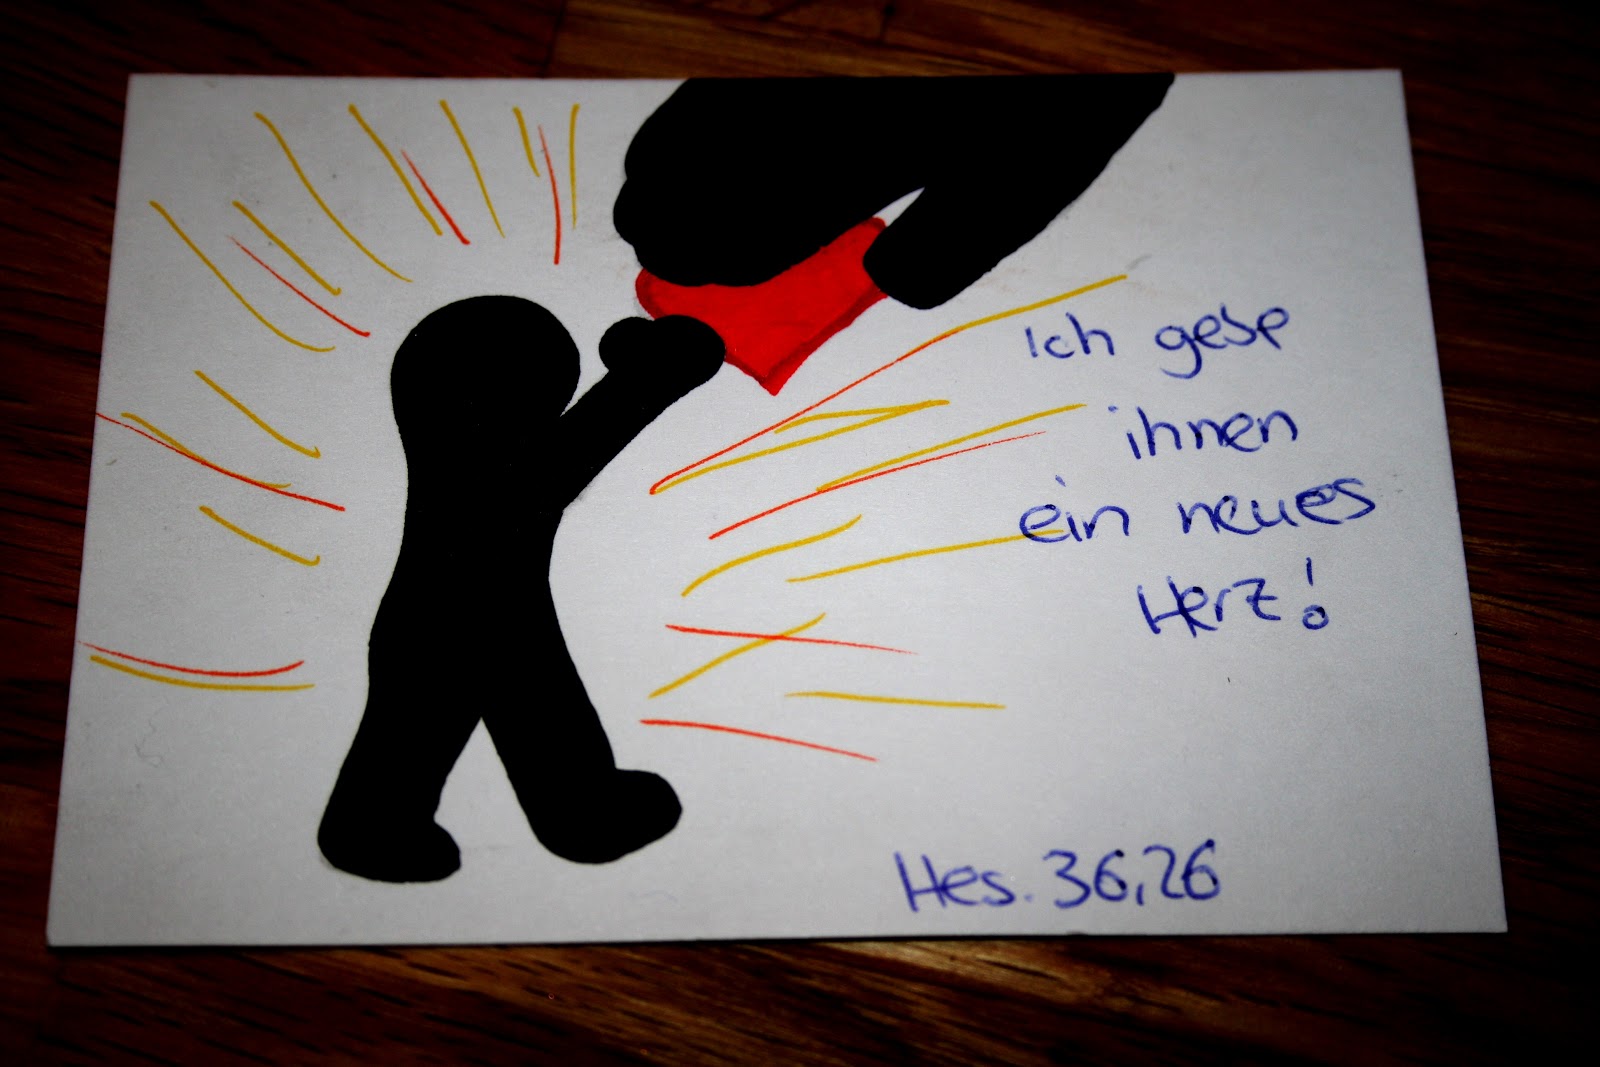 Ich gebe
ihnen
ein neues
Herz!
Hes. 36,26